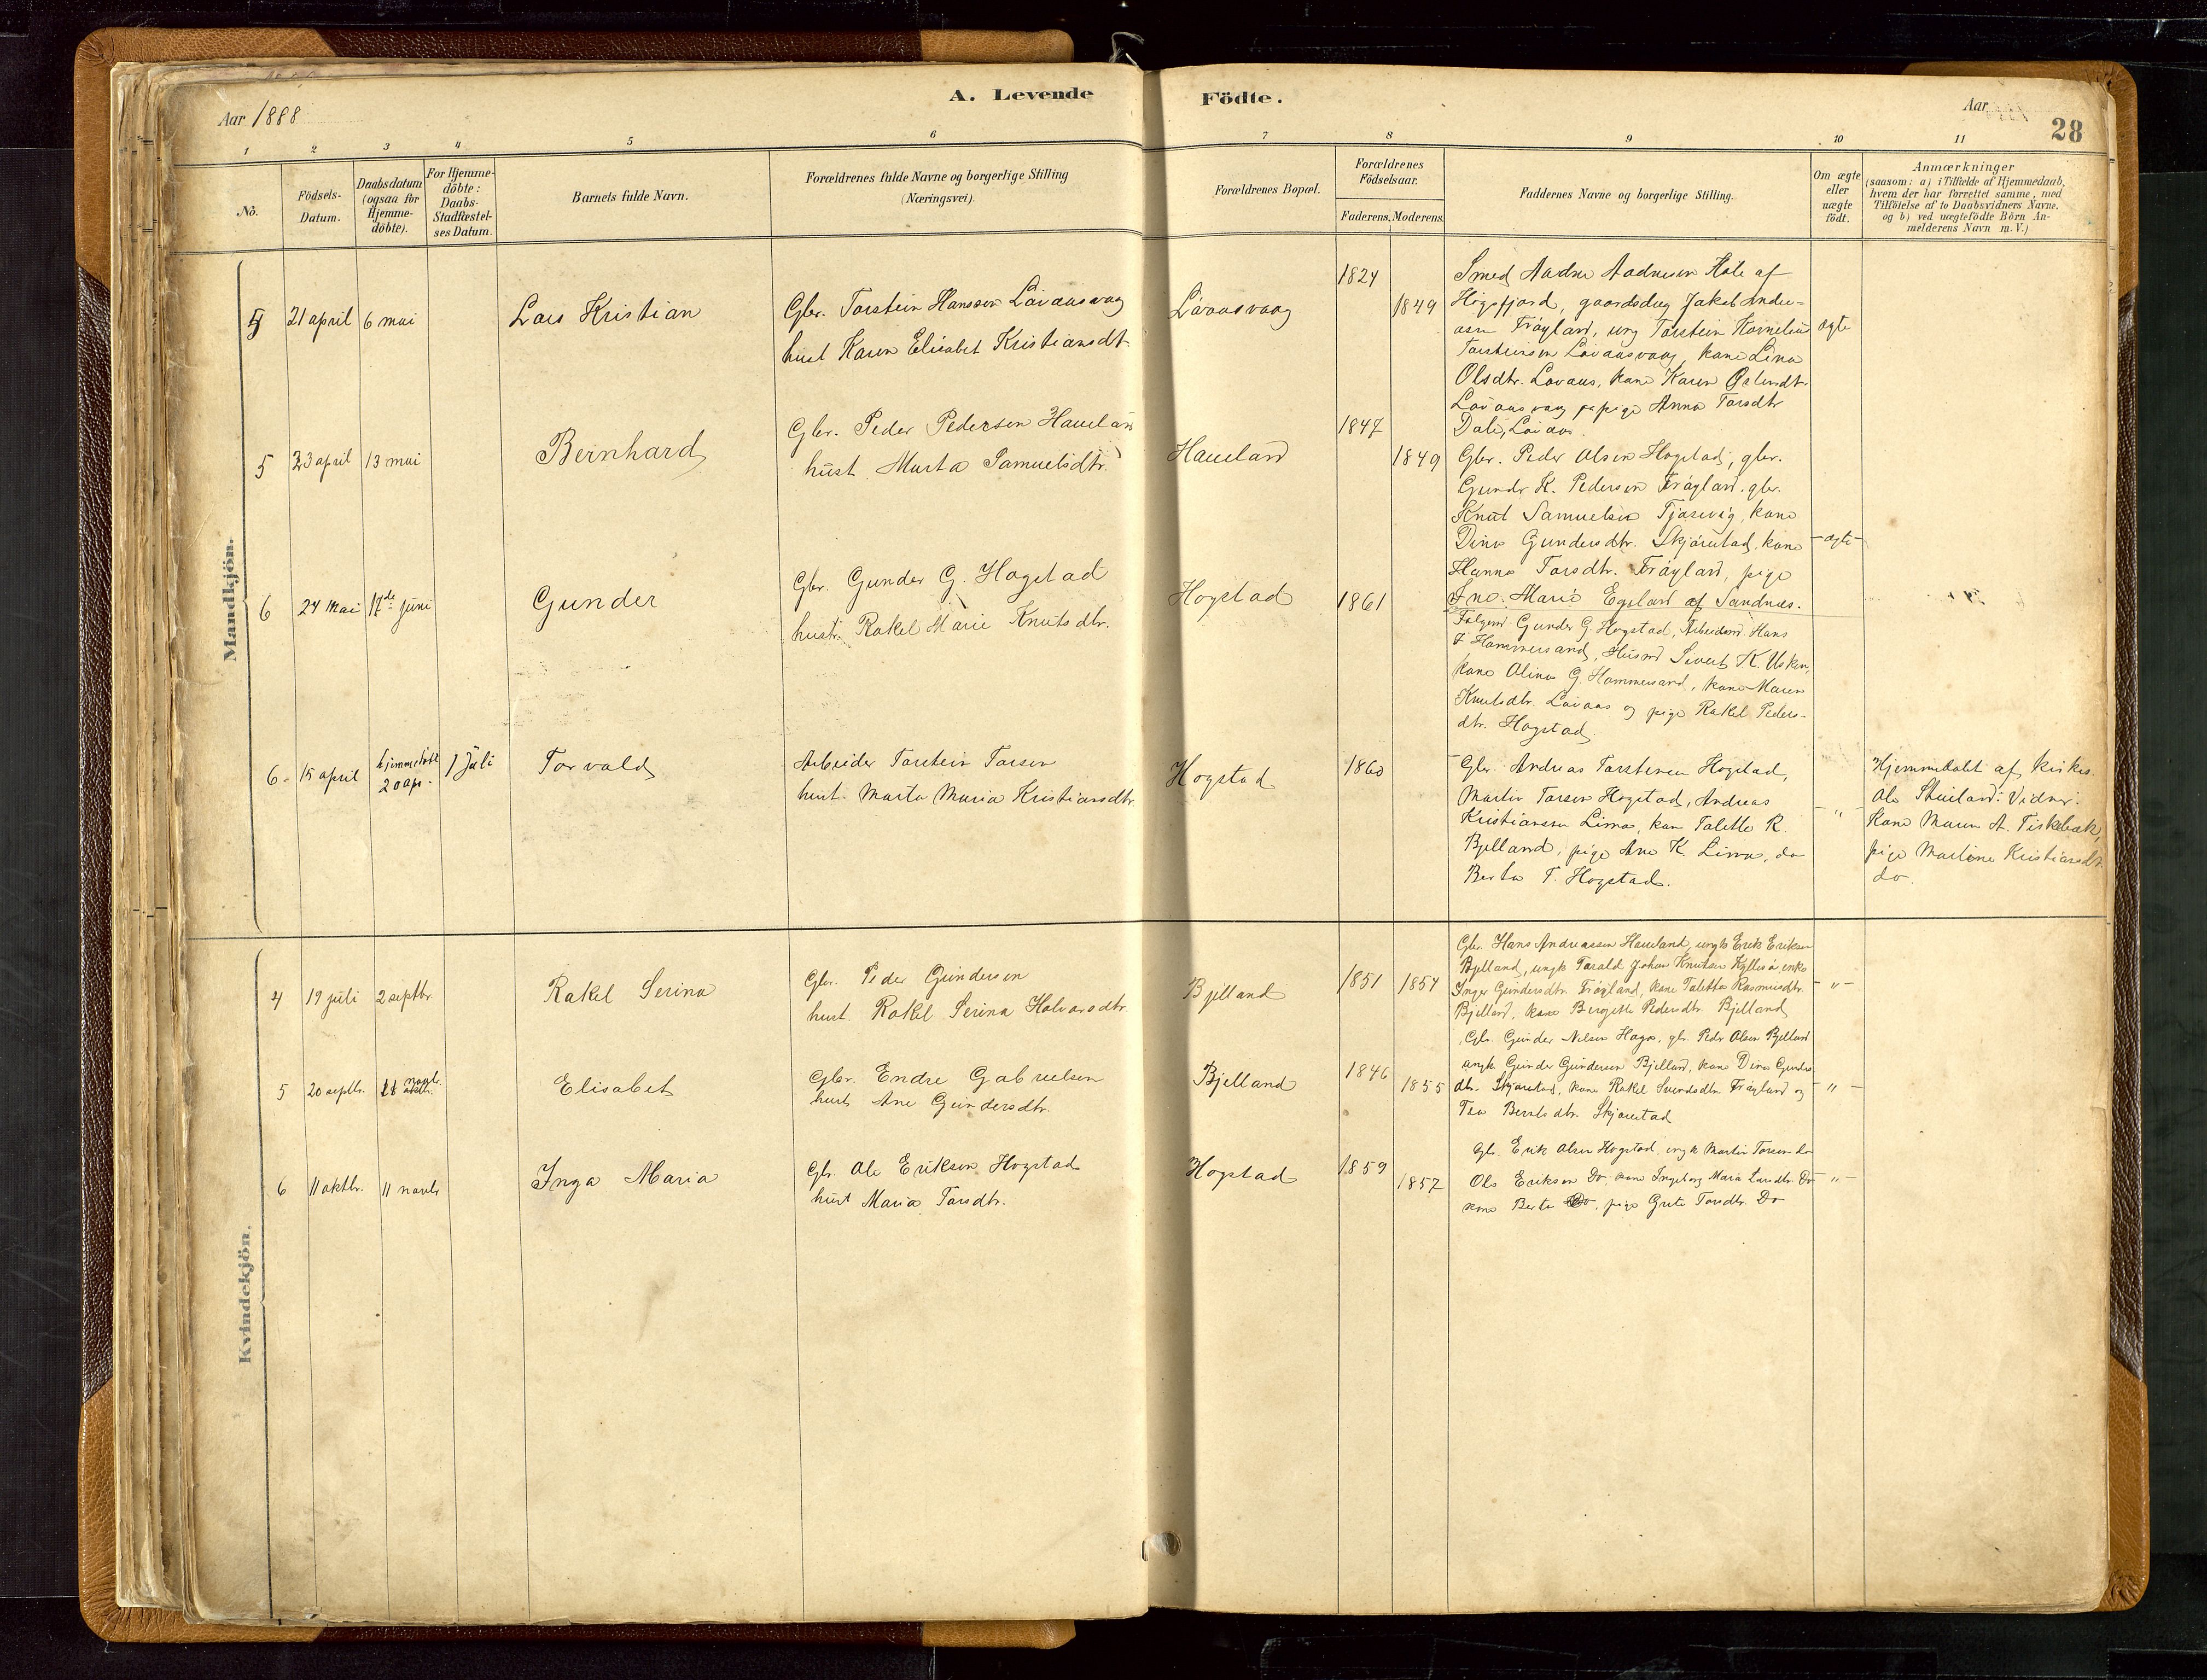 A. Levende
Födte.
Aar 1888
Aar
28
1 2 3 4 5 6 7 8 9 10 11
No.
Födsels-
Datum.
Daabsdatum
(ogsaa for
Hjemme-
döbte).
For Hjemme-
döbte:
Daabs-
Stadfæstel-
ses Datum.
Barnets fulde Navn.
Forældrenes fulde Navne og borgerlige Stilling
(Næringsvei).
Forældrenes Bopæl.
Forældrenes
Födselsaar.
Faderens. Moderens.
Faddernes Navne og borgerlige Stilling.
Om ægte
eller
uægte
födt.
Anmærkninger
(saasom: a) i Tilfælde af Hjemmedaab,
hvem der har forrettet samme, med
Tilföielse af to Daabsvidners Navne.
og b) ved uægtefödte Börn An-
melderens Navn m. V.)
Mandkjön.
21 april 6 mai
Lars Kristian
Gbr. Torstein Hansson Lövaasvaag
hust Karen Elisabet Kristiansdt.
Lövaasvaag
1824
1849
Smed Aadne Aadnesen Hole af
Högsfjord, gaardsdrg Jakob Andre-
asen Fröyland, ung Torstein Kornelius
Torsteinsen Lövaasvaag, kone Lina
Olsdtr. Lövaas, kone Karen
Lövaasvaag pige Anna Torsdtr
Dale, Lövaas.
ægte
5 23 april 13 mai
Bernhard
Gbr. Peder Pedersen Haueland
hust. Marta Samuelsdtr.
Haueland
1847
1849
Gbr. Peder Olsen Hogstad, gbr.
Gunder K. Pedersen Fröyland. gbr.
Knut Samuelsen Tjosevig, kone
Dina Gundersdtr. Skjörestad, kone
Hanna Torsdtr. Fröyland, pige
Ino. Marie Egeland af Sandnæs.
- ægte -
6 24 Mai 17de juni
Gunder
Gbr. Gunder G. Hogstad
hustr. Rakel Marie Knutsdtr.
Hogstad
1861
Gunder G. Hogstad, Arbeidsmd. Hans
T Hammersand, Husmd Sivert K. Usken,
kone Olina G. Hammersand, kone Maren
Knutsdtr. Lövaas og pige Rakel Peders-
dtr. Hogstad.
6 15 april hjemmedöbt
20 apr. 1 juli
Torvald
Arbeider Torstein Torsen
hust. Marta Maria Kristiansdtr.
Hogstad
1860
Gbr. Andreas Torstensen Hogstad,
Martin Torsen Hogstad, Andreas
Kristianssen Lima, kone Talette R.
Bjelland, pige Ane K. Lima, do
Berta T. Hogstad.
- " -
Hjemmedöbt af kirkes.
Ole Vidner:
kone Maren A. Fiskebæk,
pige Martine Kristiansdtr.
do.
Kvindekjön.
4 19 juli 2 septbr.
Rakel Serina
Gbr. Peder Gundersen
hust. Rakel Serina Halvorsdtr.
Bjelland
1851 1854
Gbr. Hans Andreassen Haueland, ungk Erik Eriksen
Bjelland, ungk Tarald Johan Knutsen Kyllesö, enke
Inger Gundersdtr. Fröyland, kone Talette Rasmusdtr.
Bjelland, kone Bergitte Pedersdtr. Bjelland
- " -
5 20 septbr. 11 novbr.
Elisabet
Gbr. Endre Gabrielsen
hust Ane Gundersdtr.
Bjelland
1846
1855
Gbr. Gunder Nilsen Haga, gbr. Peder Olsen Bjelland
ungk. Gunder Gundersen Bjelland, kone Dina Gunders
dtr. Skjörestad, kone Rakel Svendsdtr. Fröyland og
Tea Berntsdtr. Skjörestad
- " -
6 11 oktbr. 11 novbr
Inga Maria
Gbr. Ole Eriksen Hogstad
hust Maria Torsdtr.
Hogstad
1859
1857
Gbr. Erik Olsen Hogstad, ungk Martin Torsen do
Ole Eriksen Do, kone Ingeborg Maria Larsdtr. Do
kone Berta Do, pige Grete Torsdtr. Do
- " -